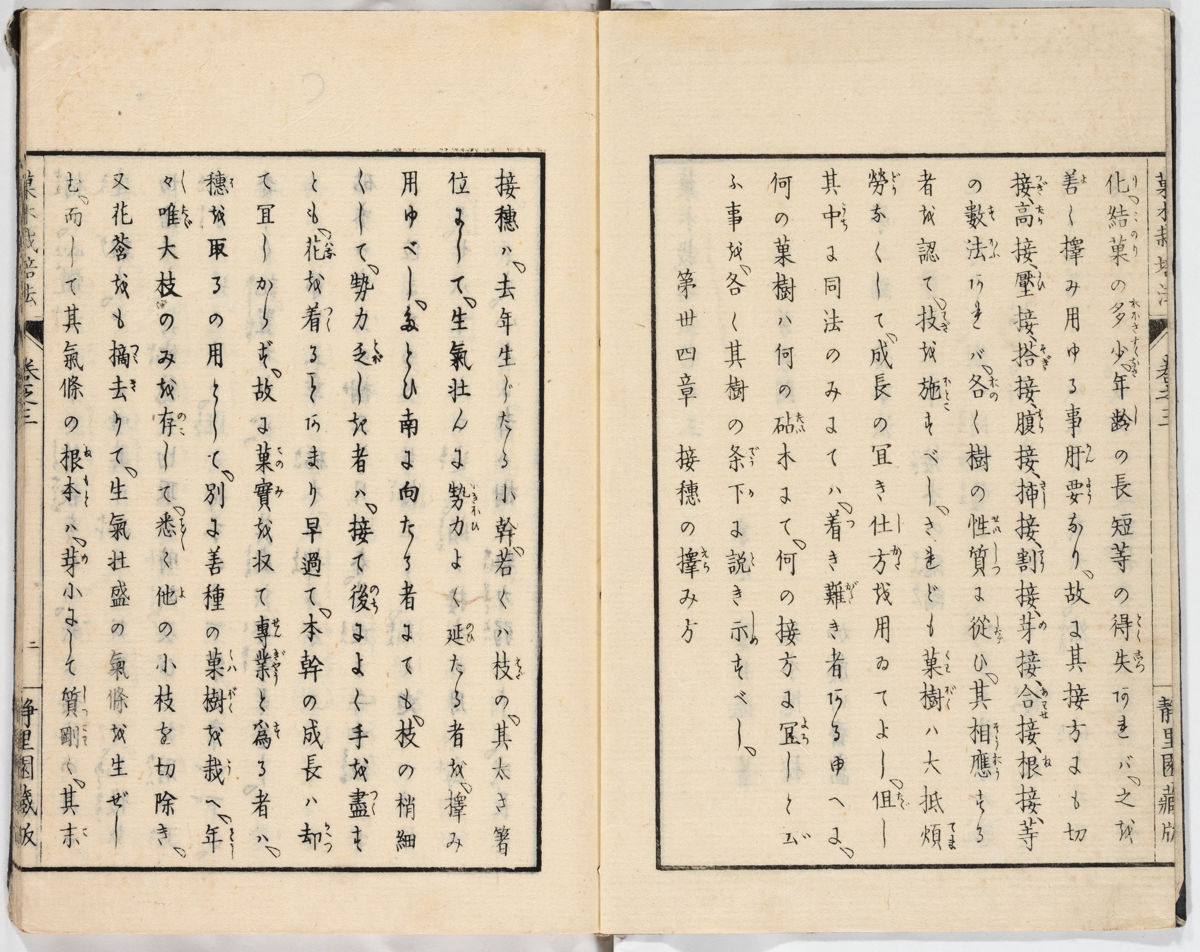 菓木栽培法 卷之三 靜里園藏版
化結菓の多少、年齢の長短等の得失あれバ、之を
善く擇み用ゆる事肝要なり、故に其接方にも切
接、高接、壓接、搭接、腹接、挿接、割接、芽接、合接、根接、等
の數法あれバ、各く樹の性質に從ひ、其相應する
者を認て、技を施すべし、されども菓樹ハ大抵煩
勞なくして、成長の冝き仕方を用ゐてよし、但し
其中に同法のみにてハ、着き難き者ある申へに、
何の菓樹ハ何の砧木にて、何の接方に冝しと云
ふ事を、各く其樹の条下に説き示すべし、
第丗四章 接穗の擇み方
接穗ハ、去年生じたる小幹若くハ枝の、其太さ箸
位にして、生氣壮んに勢力よく延たる者を、擇み
用ゆべし、たとひ南に向たる者にても、枝の梢細
くして、勢力乏しき者ハ、接て後によく手を盡す
とも、花を着ることあまり早過て、本幹の成長ハ却
て冝しからず、故に菓實を收て專業と爲る者ハ、
穗を取るの用として、別に善種の菓樹を栽へ、年
々唯大枝のみを存して、悉く他の小枝を切除き、
又花莟をも摘去りて、生氣壮盛の氣條を生ぜし
む、而して其氣條の根本ハ、芽小にして質剛く、其末
菓木栽培法 卷之三 二 靜里園藏版